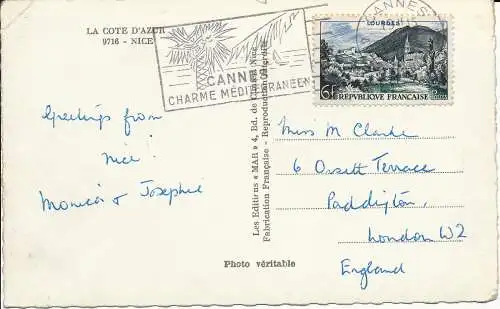 LA COTE D'AZUR
9716 - NICE
CANNES
CHARME MÉDITERRANÉEN
CANNES
LOURDES
6F REPVBLIQVE FRANÇAISE
Greetings from
Nice!
Monica & Josephine
Les Editions « MAR » 4, Bd. de
Fabrication Française - Reproduction Interdite
Miss M Clarke
6 Orsett Terrace
Paddington,
London W2
England
Photo véritable